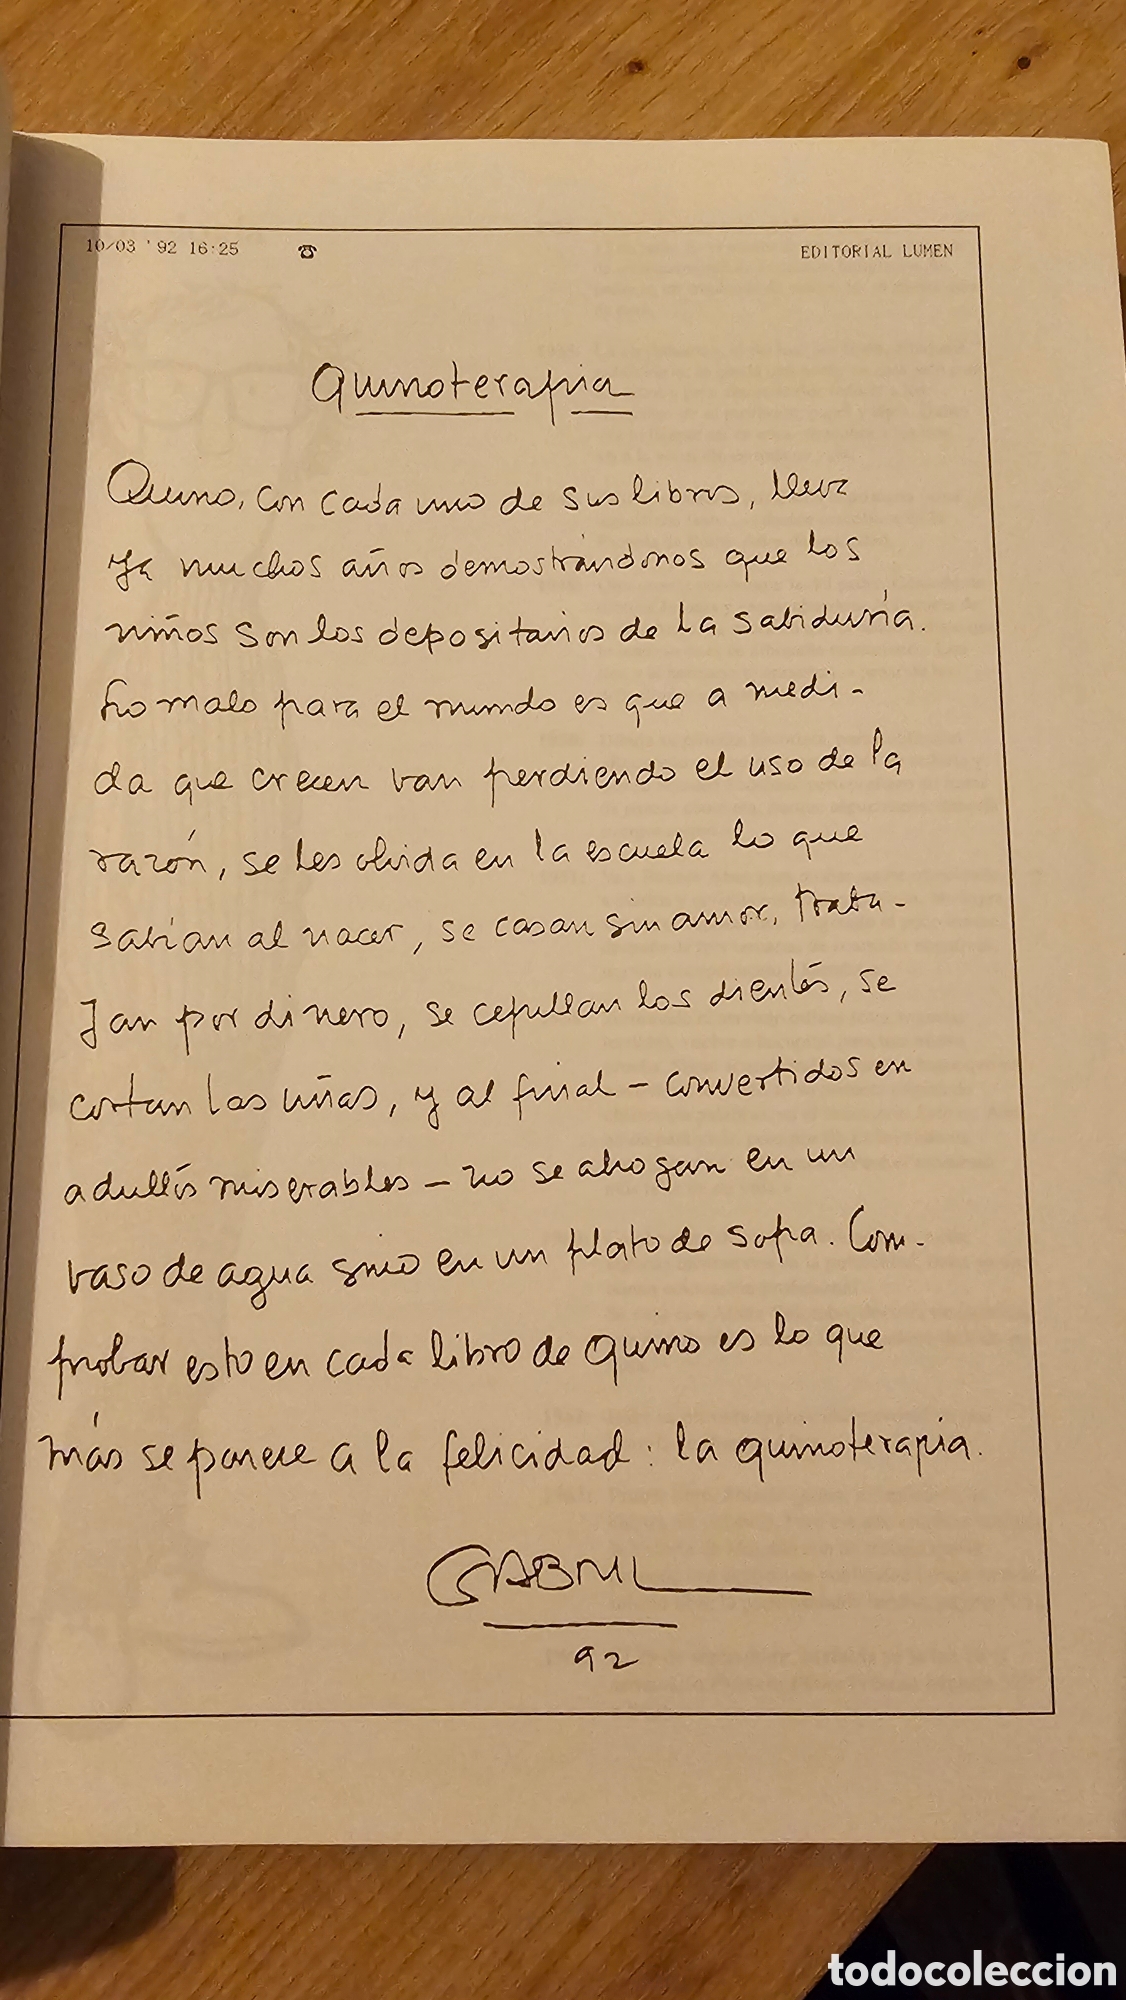 10/03 '92 16:25 ☎ EDITORIAL LUMEN
Quinoterapia
Quino, con cada uno de sus libros, lleva
ya muchos años demostrándonos que los
niños son los depositarios de la sabiduría.
Lo malo para el mundo es que a medi-
da que crecen van perdiendo el uso de la
razón, se les olvida en la escuela lo que
sabían al nacer, se casan sin amor, traba-
jan por dinero, se cepillan los dientes, se
cortan las uñas, y al final - convertidos en
adultos miserables - no se ahogan en un
vaso de agua sino en un plato de sopa. Com-
probar esto en cada libro de Quino es lo que
más se parece a la felicidad: la quinoterapia.
GABRIEL
92
todocoleccion